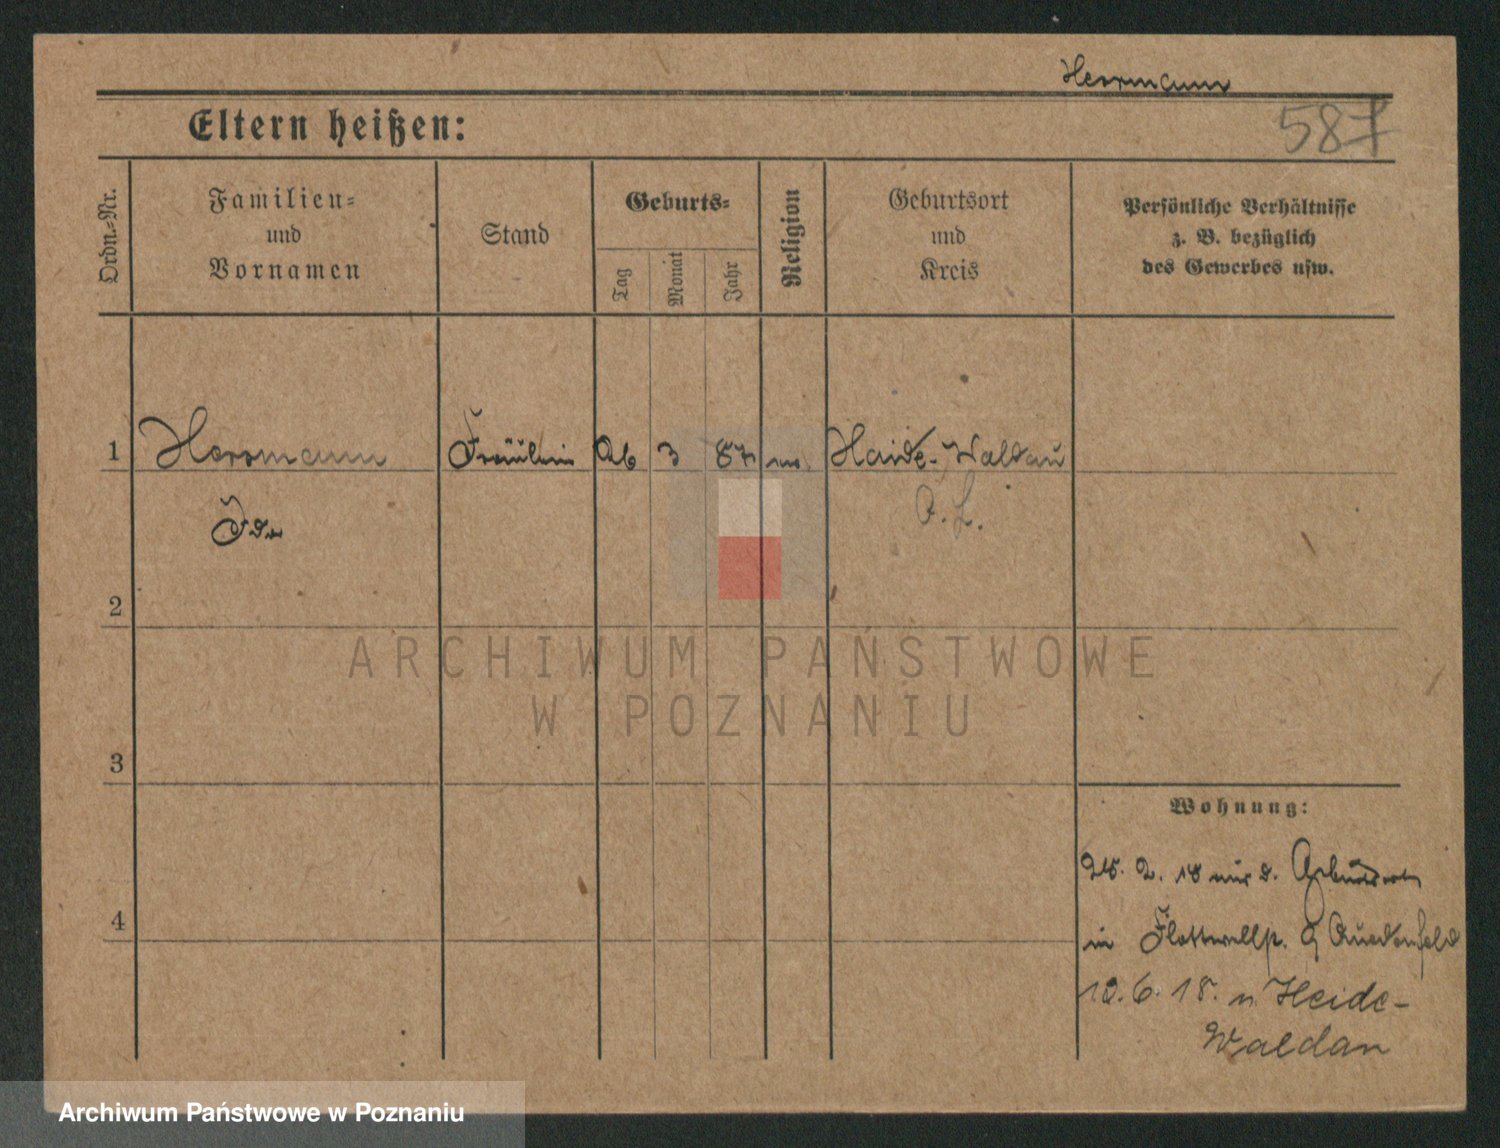 Herrmann
587
Eltern heißen:
Ordn.-Nr.
Familien-
und
Vornamen
Stand
Geburts-
Tag
Monat
Jahr
Religion
Geburtsort
und
Kreis
Persönliche Verhältnisse
z. B. bezüglich
des Gewerbes usw.
1 Herrmann Fräulein 26 3 87 ev. Haide-Waldau
Ida O. L.
2
ARCHIWUM PAŃSTWOWE
W POZNANIU
3
Wohnung:
2. 18 d. Geburtsort
4
in Flottwellstr. 9 Quedenfeld
10. 6. 18. n Heide-
Waldau
Archiwum Państwowe w Poznaniu